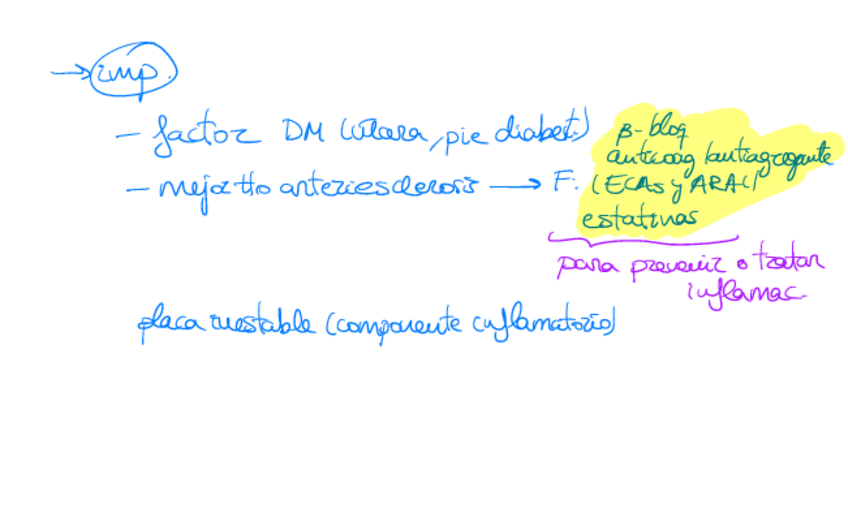 → imp.
– factor DM (úlcera, pie diabet.)
– mejor tto arteriesclerosis → F.
β-bloq
anticoag/antiagregante
IECAs y ARAII
estatinas
para prevenir o tratar
inflamac.
placa inestable (componente inflamatorio)